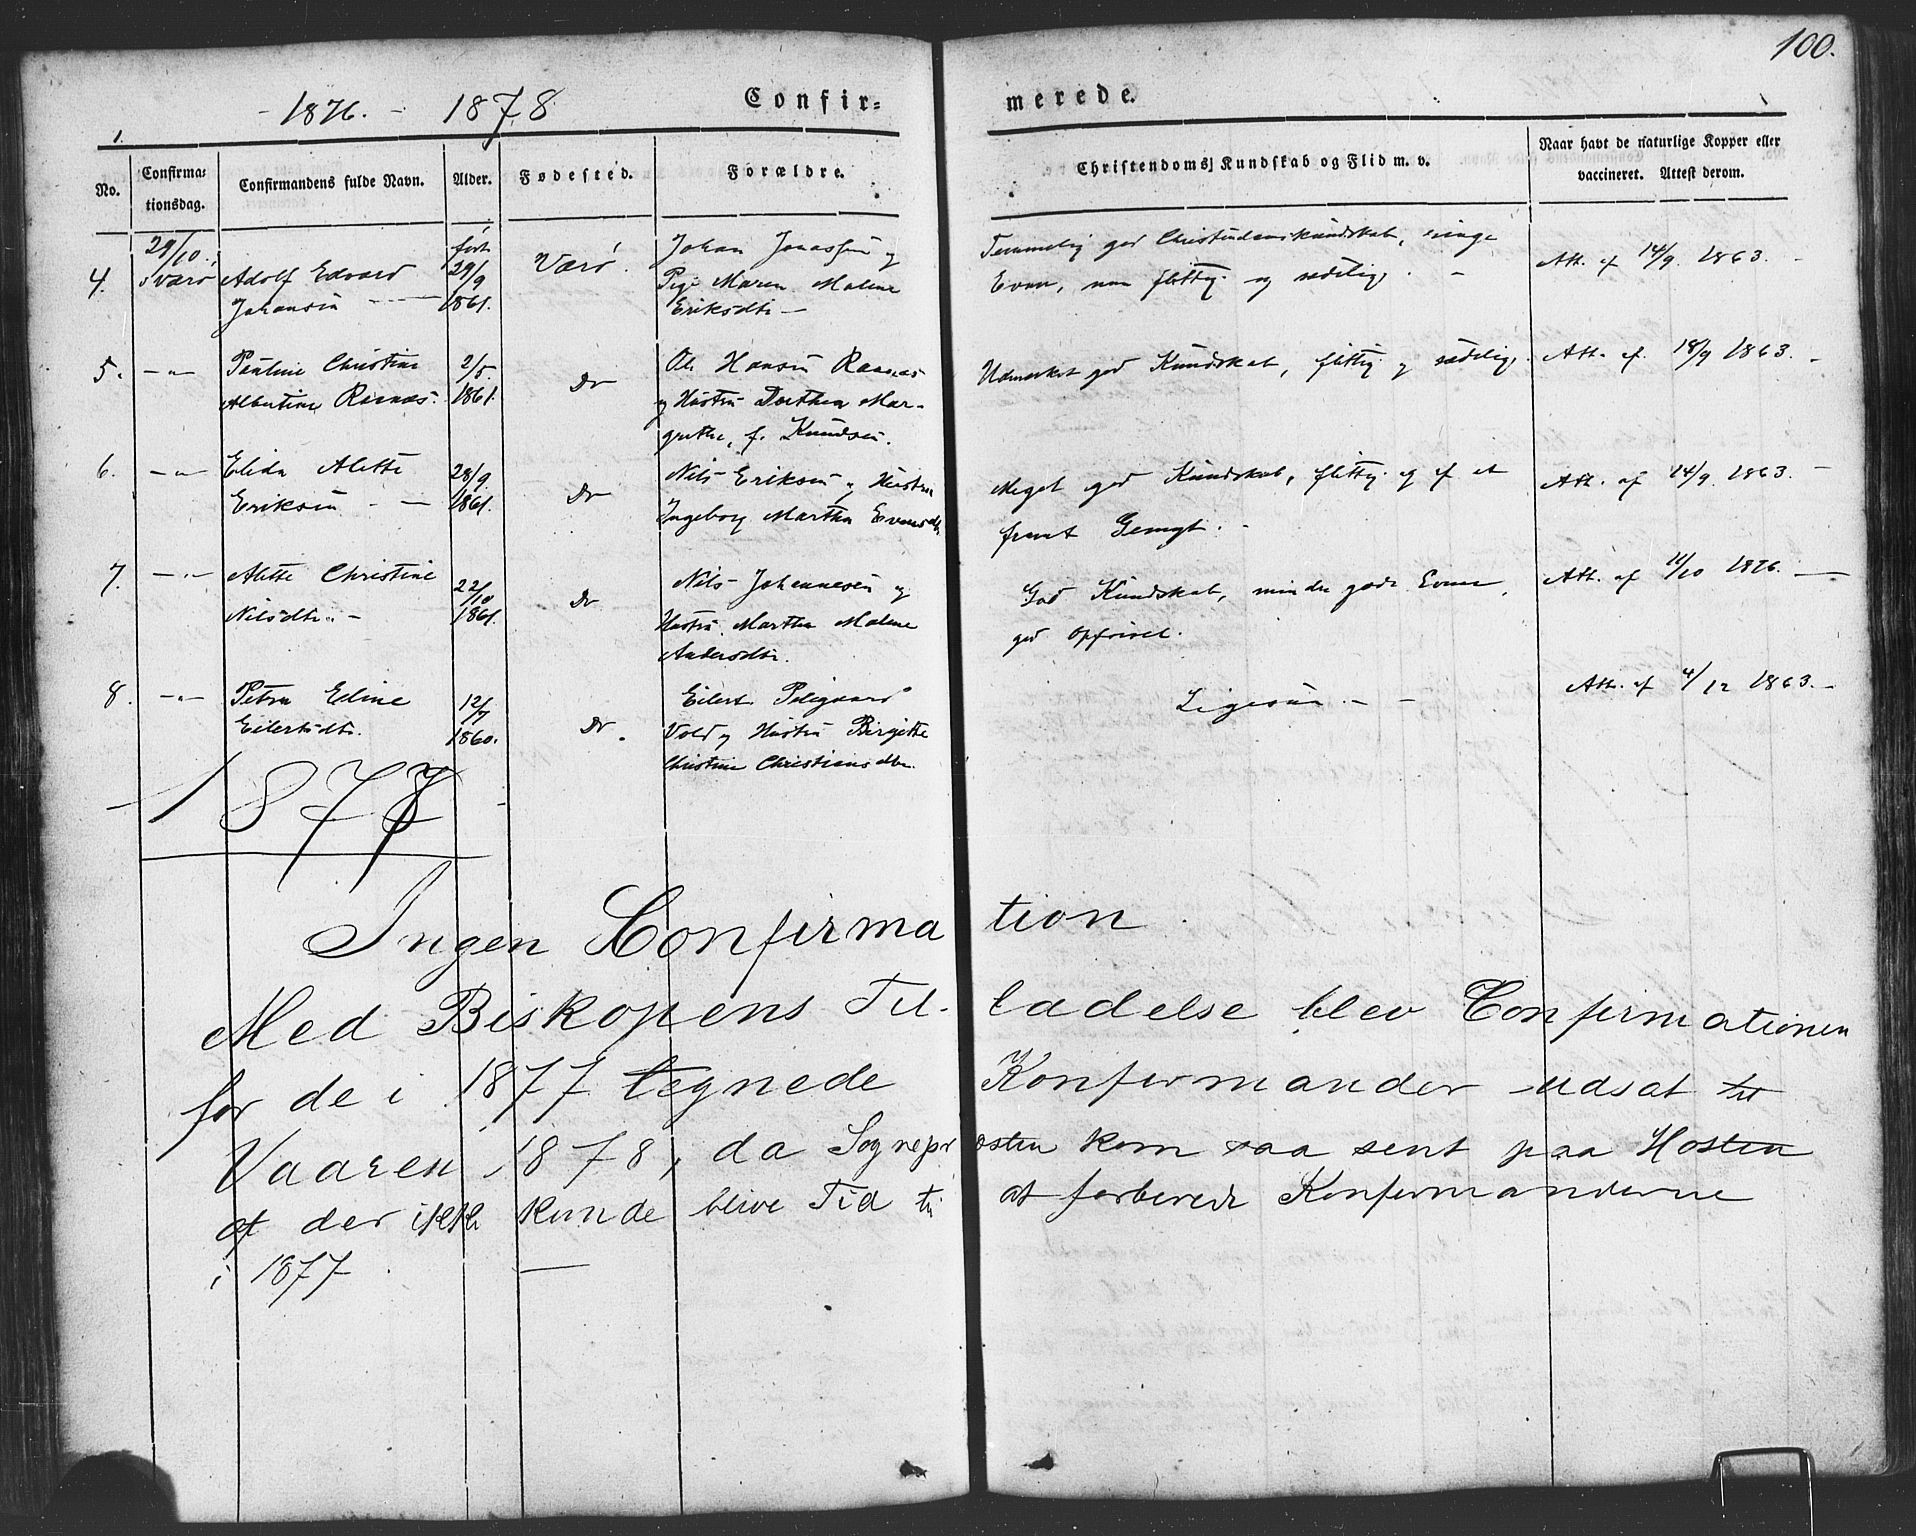 100.
- 1876. - 1878
Confir=
merede.
1.
No.
Confirma=
tionsdag.
Confirmandens fulde Navn.
Alder.
Fødested.
Forældre.
Christendoms Kundskab og Flid m. v.
Naar havt de naturlige Kopper eller
vaccineret. Attest derom.
29/10
4. i Værø Adolf Edvard
Johansen
født
29/9
1861.
Værø.
Johan Jonassen og
Pige Maren Malene
Eriksdtr
Temmelig god Christendomskundskab, ringe
Evner, men flittig og sædelig.
Att. af 14/9 1863.
5. Pauline Christine
Albertine Røsnæs.
2/5
1861.
Do
Ole Hansen Røsnæs
og Hustru Dorthea Mar-
grethe, f. Knudsen.
Udmærket god Kundskab, flittig og sædelig.
Att. af 18/9 1863.
6. Elida Alette
Eriksen
28/9
1861.
Do
Nils Eriksen og Hustru
Ingeborg Martha Evensdtr
Meget god Kundskab, flittig og af et
fromt Gemyt.
Att. af 14/9 1863.
7. Alette Christine
Nilsdtr
22/10
1861.
Do
Nils Johannesen og
Hustru Martha Malene
Andersdtr.
God Kundskab, mindre gode Evner,
god Opførsel.
Att. af 11/10 1876.
8. Petra Eline
Eilertsdtr.
12/7
1860.
Do.
Eilert
Vold og Hustru Birgitte
Christine Christiansdtr.
Ligesaa.
Att. af 4/12 1863.
1877
Ingen Confirmation.
Med Biskopens Til-ladelse blev Confirmationen
for de i 1877 tegnede Konfirmander udsat til
Vaaren 1878, da Sognepresten kom saa sent paa Høsten
at der ikke kunde blive Tid til at forberede Konfirmanderne
i 1877.